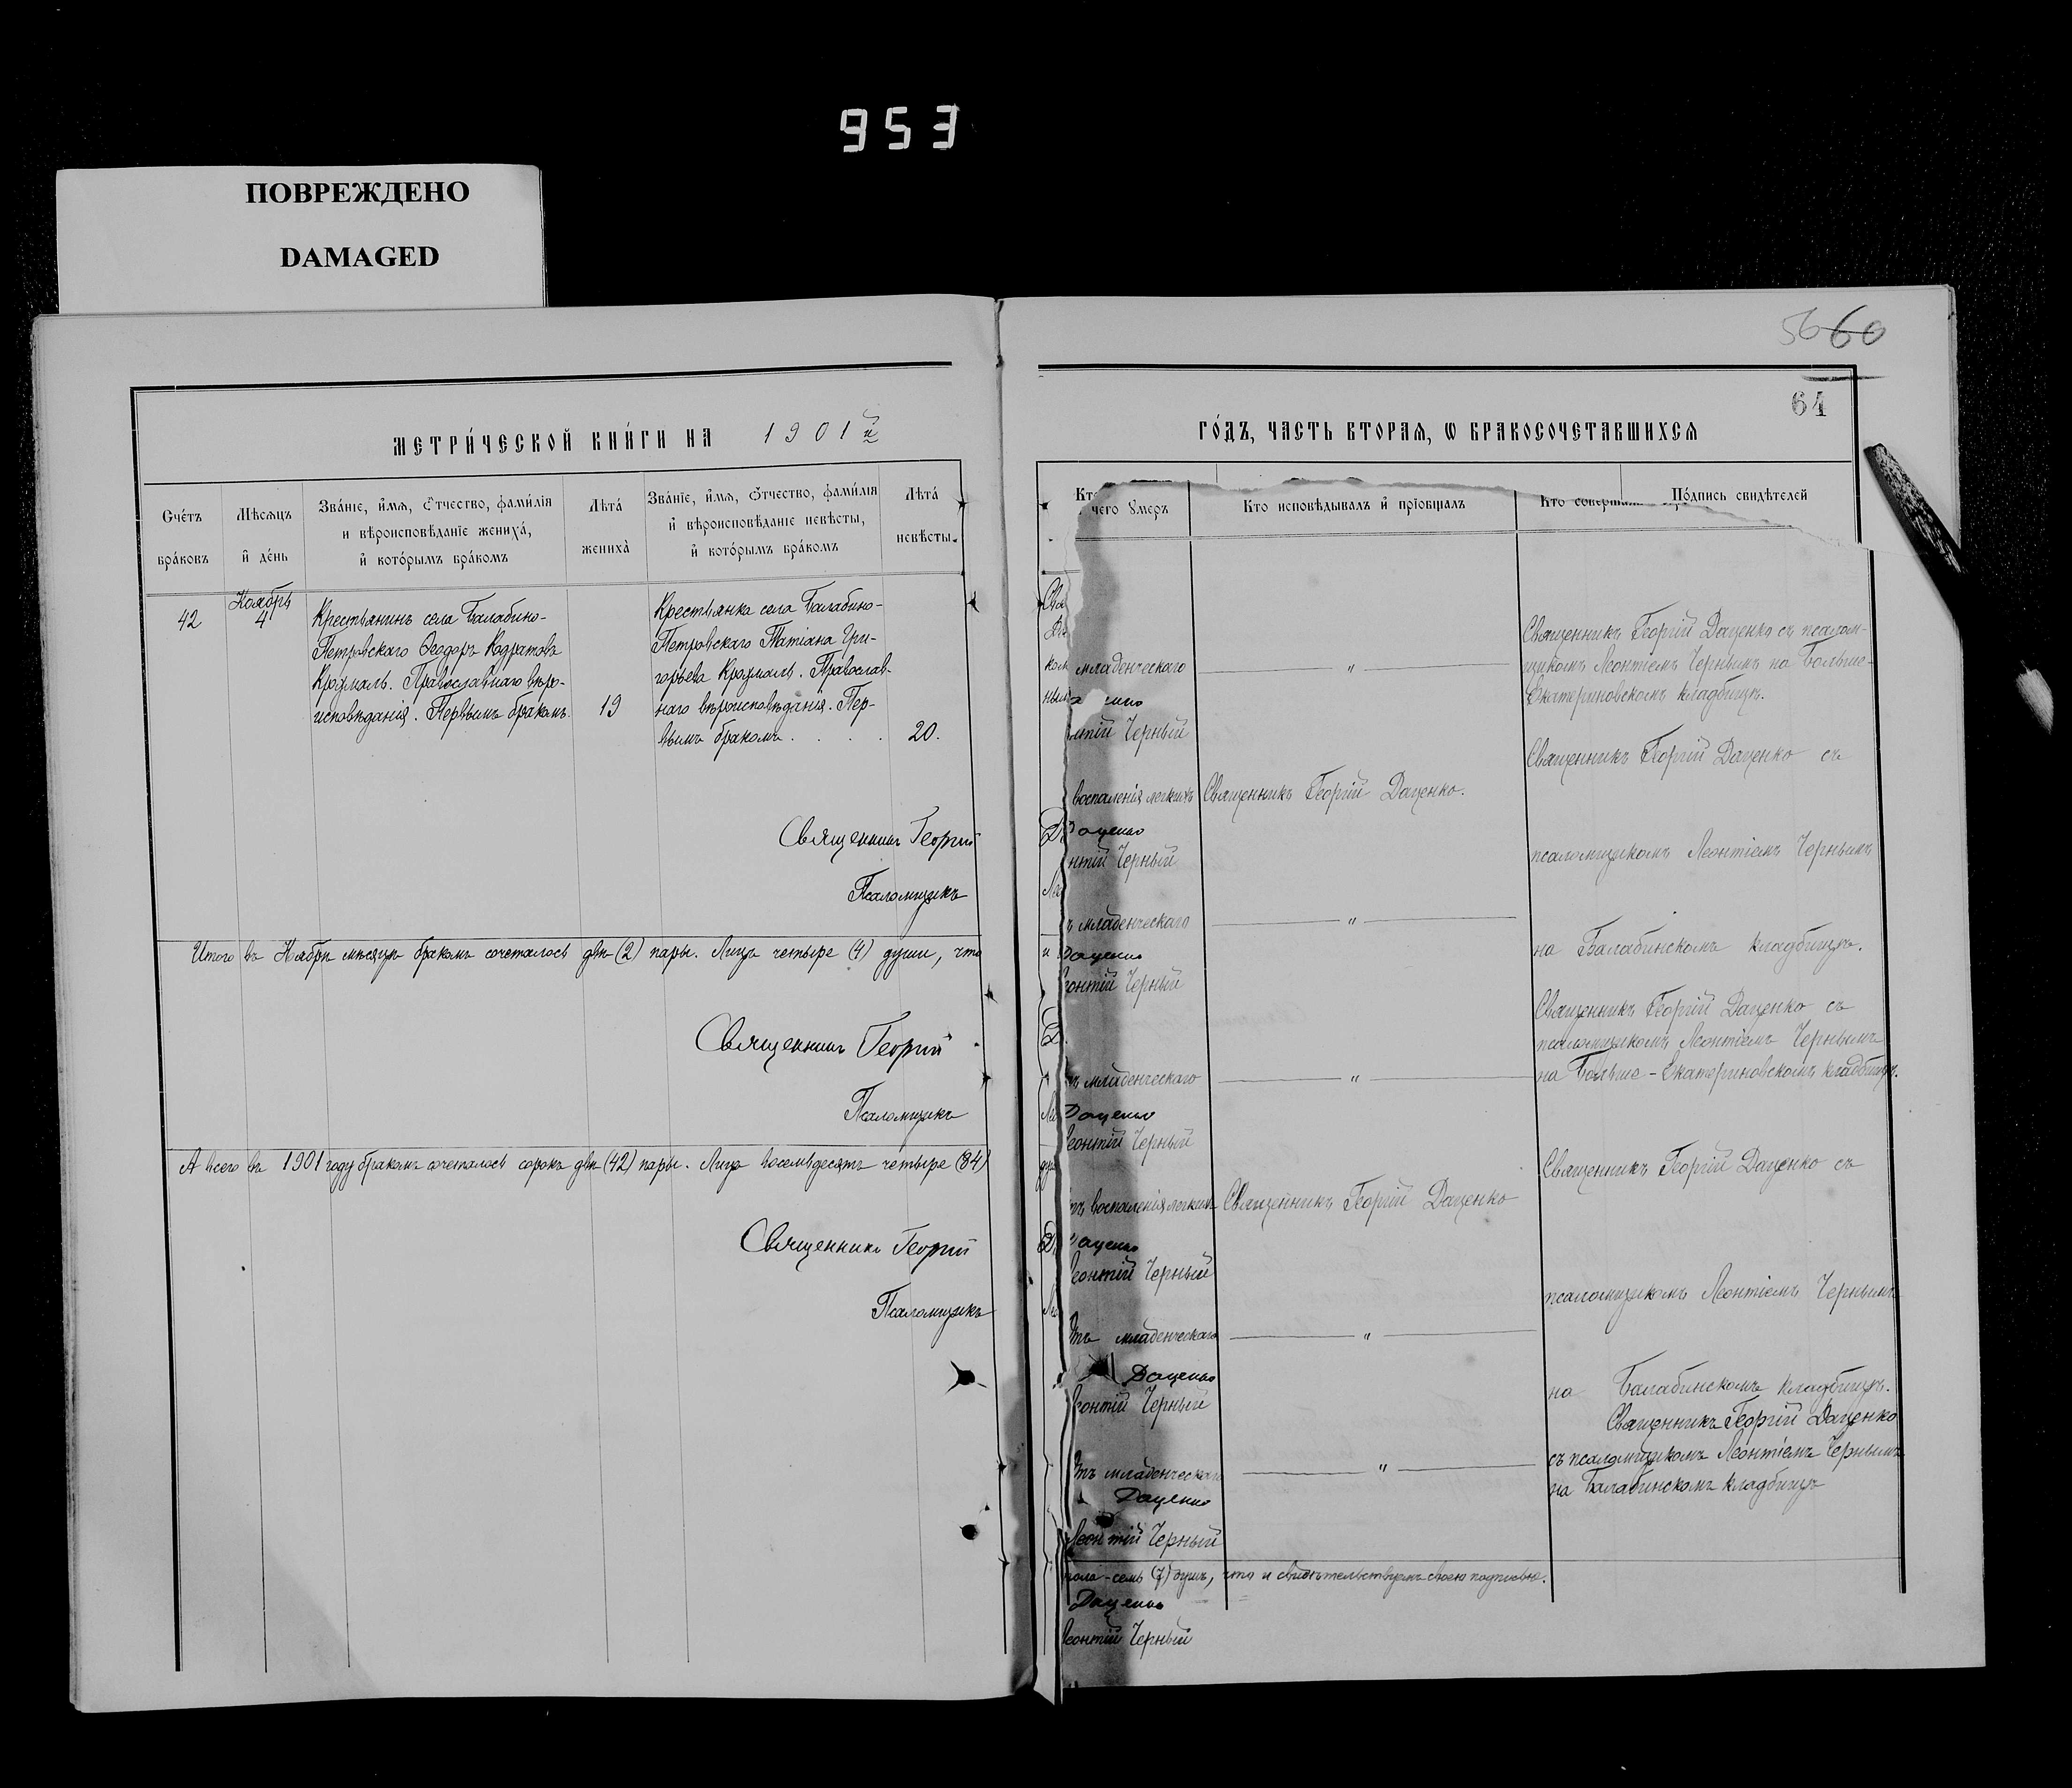 953
ПОВРЕЖДЕНО
DAMAGED
56 60
64
МЕТРИ́ЧЕСКОЙ КНИ́ГИ НА 1901 й
Сче́тъ бра́ковъ
Мѣсяцъ и҆ де́нь
Зва́нїе, и҆́мя, ѻ҆́тчество, фами́лїя и вѣроисповѣ́данїе жениха̀, и҆ кото́рымъ бра́комъ
Лѣта̀ жениха̀
Зва́нїе, и҆́мя, ѻ҆́тчество, фами́лїя и҆ вѣроисповѣ́данїе невѣ́сты, и҆ кото́рымъ бра́комъ
Лѣта̀ невѣ́сты.
42
Ноябрь
4
Крестьянинъ села Балабино-
Петровскаго Ѳеодоръ Кодратовъ
Крохмаль. Православнаго вѣро-
исповѣданія. Первымъ бракомъ.
19
Крестьянка села Балабино-
Петровскаго Татіана Гри-
горьева Крохмаль. Православ-
наго вѣроисповѣданія. Пер-
вымъ бракомъ . . . .
20.
Священникъ Георгій
Псаломщикъ
Итого въ Ноябрѣ мѣсяцѣ бракомъ сочеталось двѣ (2) пары. Лицъ четыре (4) души, что
Священникъ Георгій
Псаломщикъ
А всего въ 1901 году бракомъ сочеталось сорокъ двѣ (42) пары. Лицъ восемьдесятъ четыре (84)
Священникъ Георгій
Псаломщикъ
ГО́ДЪ, ЧАСТЬ ВТОРАЯ, Ѡ БРАКОСОЧЕТАВШИХСЯ
Кто
чего ᲂу҆меръ
Кто исповѣдывалъ и҆ прїобщалъ
Кто соверш
По́дпись свидѣтелей
младенческаго
"
Священникъ Георгій Даценко съ псалом-
щикомъ Леонтіемъ Чернымъ на Больше-
Екатериновскомъ кладбищѣ.
нтій Черный
воспаленія легкихъ
Священникъ Георгій Даценко.
Священникъ Георгій Даценко съ
аценко
нтій Черный
псаломщикомъ Леонтіемъ Чернымъ
ъ младенческаго
"
на Балабинскомъ кладбищѣ.
Даценко
онтій Черный
Священникъ Георгій Даценко съ
псаломщикомъ Леонтіемъ Чернымъ
ъ младенческаго
"
на Больше-Екатериновскомъ кладбищѣ.
Даценко
еонтій Черный
Священникъ Георгій Даценко съ
тъ воспаленія легкихъ
Священникъ Георгій Даценко
аценко
еонтій Черный
псаломщикомъ Леонтіемъ Чернымъ
тъ младенческаго
"
Даценко
онтій Черный
на Балабинскомъ кладбищѣ.
Священникъ Георгій Даценко
съ псаломщикомъ Леонтіемъ Чернымъ
тъ младенческаго
"
на Балабинскомъ кладбищѣ
Даценко
Леонтій Черный
пола - семь (7) душъ, что и свидѣтельствуемъ своею подписью.
Даценко
еонтій Черный